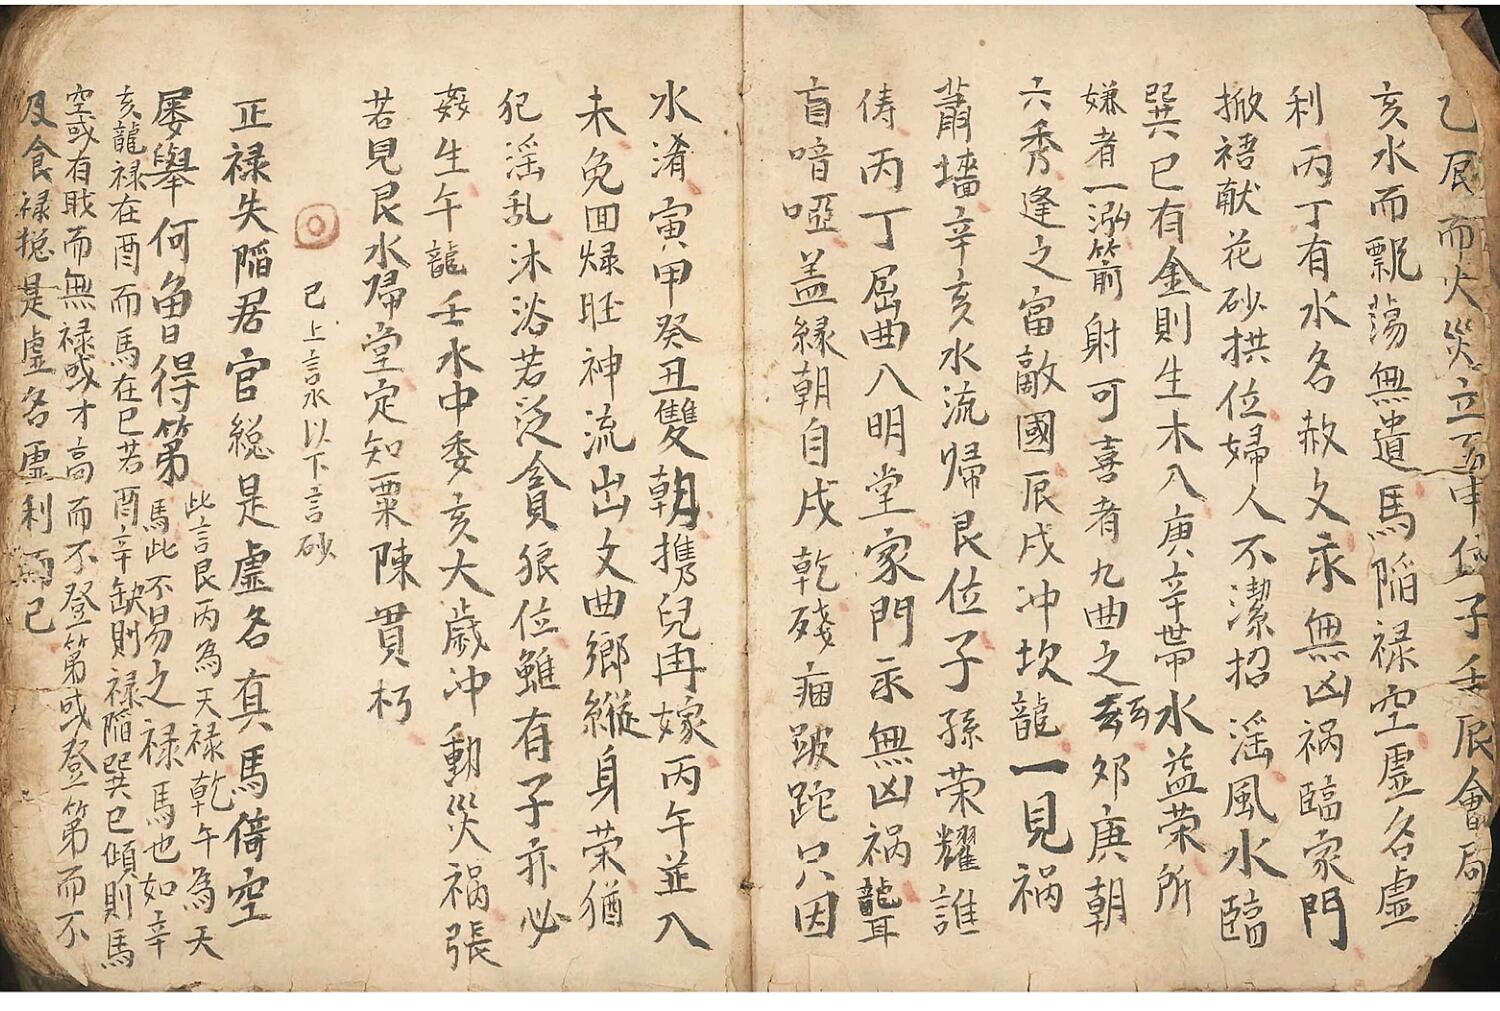 乙辰而火災立至申住子壬辰會局
亥水而飄蕩無遺馬陷禄空虛名虛
利丙丁有水名赦文永無凶祸臨家門
掀裙献花砂拱位婦人不潔招淫風水臨
巽巳有金則生木入庚辛帶水益荣所
嫌者一泓箭射可喜者九曲之玄郊庚朝
六秀逢之富敵國辰戌冲坎龍一見祸
蕭墻辛亥水流归艮位子孫荣耀誰
俦丙丁屈曲入明堂家門永無凶祸聾
盲喑啞盖緣朝自戌乾殘痼跛跎只因
水淆寅甲癸丑雙朝携兒再嫁丙午並入
未免回禄胜神流出文曲鄉縱身荣猶
犯淫乱沐浴若泛貪狼位雖有子亦必
姦生午龍壬水中委亥大歲冲動災祸張
若見艮水歸堂定知粟陳貫朽
已上言水以下言砂
正禄失陷居官總是虛名真馬倚空
屡舉何曾得第此言艮丙為天禄乾午為天
馬此不易之禄馬也如辛
亥龍禄在酉而馬在巳若酉辛缺則禄陷巽巳傾則馬
空或有戝而無禄或才高而不登第或登第而不
及食禄揔是虛名虛利而已